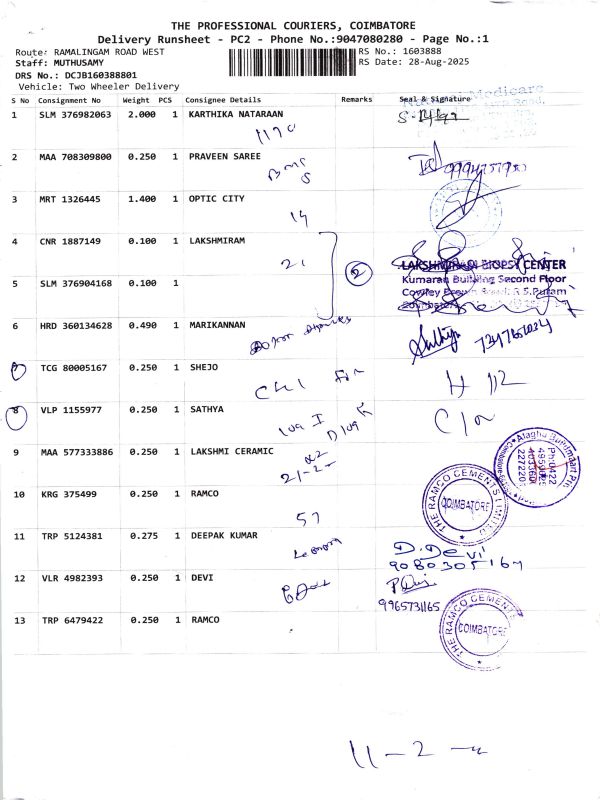 THE PROFESSIONAL COURIERS, COIMBATORE
Delivery Runsheet - PC2 - Phone No.:9047080280 - Page No.:1
Route: RAMALINGAM ROAD WEST RS No.: 1603888
Staff: MUTHUSAMY RS Date: 28-Aug-2025
DRS No.: DCJB160388801
Vehicle: Two Wheeler Delivery
S No Consignment No Weight PCS Consignee Details Remarks Seal & Signature
1 SLM 376982063 2.000 1 KARTHIKA NATARAAN
2 MAA 708309800 0.250 1 PRAVEEN SAREE
3 MRT 1326445 1.400 1 OPTIC CITY
14
4 CNR 1887149 0.100 1 LAKSHMIRAM
21
2
BIOPSY CENTER
Kumaran Building Second Floor
5 SLM 376904168 0.100 1
6 HRD 360134628 0.490 1 MARIKANNAN
7 TCG 80005167 0.250 1 SHEJO
8 VLP 1155977 0.250 1 SATHYA
9 MAA 577333886 0.250 1 LAKSHMI CERAMIC
10 KRG 375499 0.250 1 RAMCO
57
THE RAMCO CEMENTS LIMITED
COIMBATORE
11 TRP 5124381 0.275 1 DEEPAK KUMAR
D. Devi
9080305167
12 VLR 4982393 0.250 1 DEVI
9965731165
13 TRP 6479422 0.250 1 RAMCO
THE RAMCO CEMENTS
COIMBATORE
11-2-